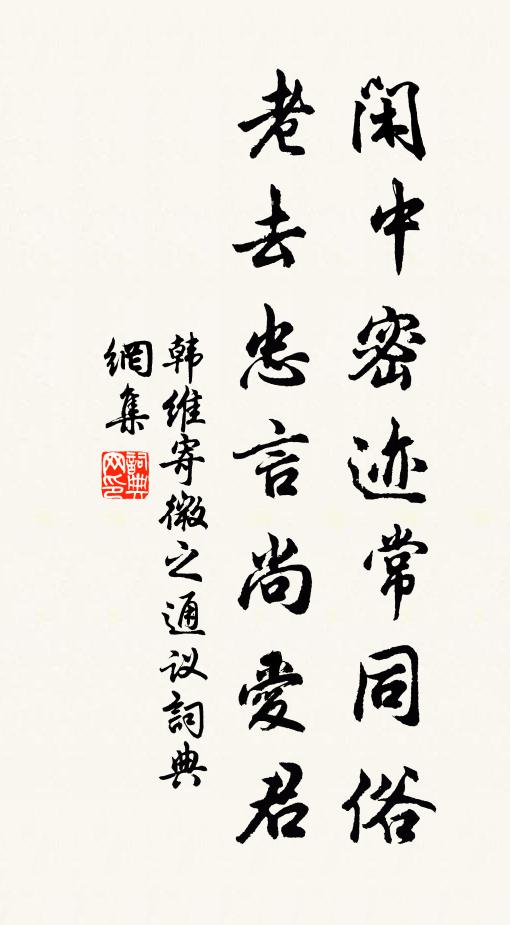 闲中密迹常同俗
老去忠言尚愛君
韩維寄微之通议詞典
網集
詞典
网印